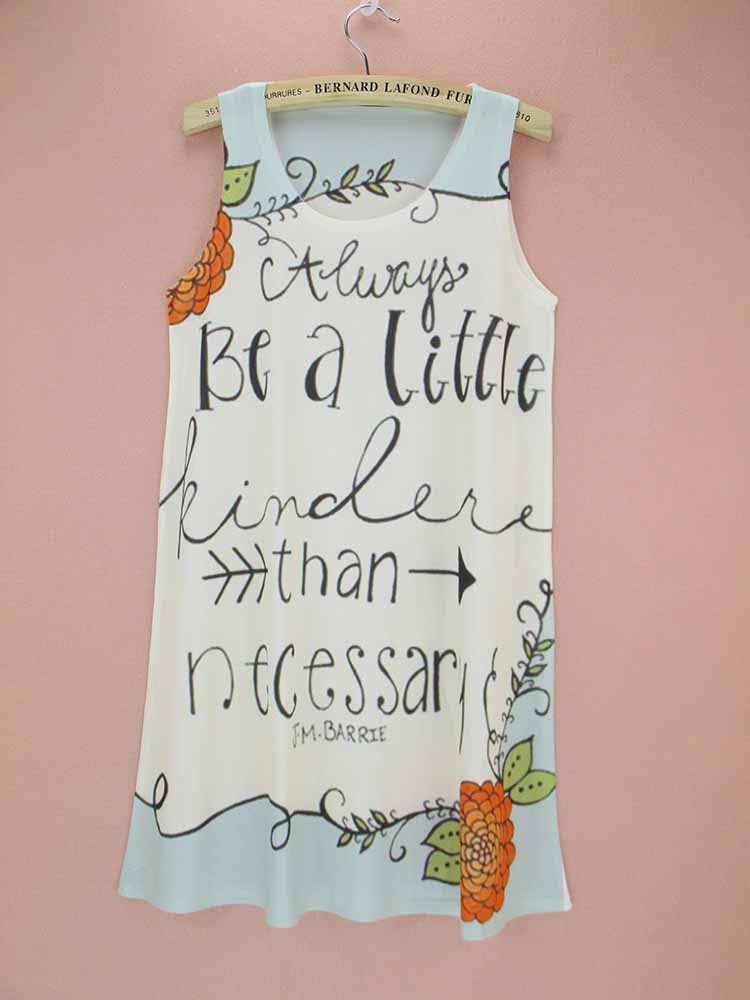 351 OURRURES - BERNARD LAFOND FUR 810
Always
Be a little
kindere
than
necessary
J.M. BARRIE